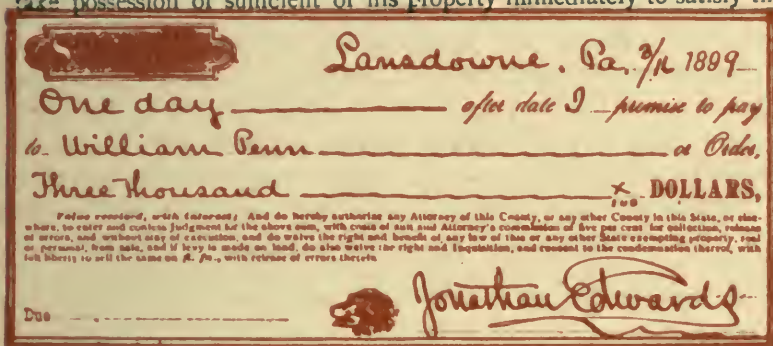 take possession of sufficient of his property immediately to satisfy
Lansdowne, Pa, 3/11 1899
One day after date I promise to pay
to William Penn or Order,
Three thousand x/100 DOLLARS,
Value received, with interest; And do hereby authorize any Attorney of this County, or any other County in this State, or else-
where, to enter and confess judgment for the above sum, with costs of suit and Attorney's commission of five per cent. for collection, release
of errors, and without stay of execution, and do waive the right and benefit of any law of this or any other State exempting property, real
or personal, from sale, and if levy is made on land, do also waive the right and inquisition, and consent to the condemnation thereof, with
full liberty to sell the same on fi. fa., with release of errors therein.
Due Jonathan Edwards